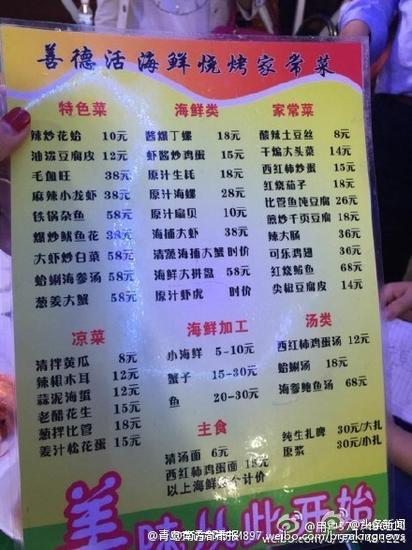 善德活海鲜烧烤家常菜
特色菜
辣炒花蛤 10元
油泼豆腐皮 12元
毛血旺 38元
麻辣小龙虾 38元
铁锅杂鱼 58元
爆炒鱿鱼花 38元
大虾炒白菜 58元
蛤蜊海参汤 58元
葱姜大蟹 58元
海鲜类
酱爆丁螺 18元
虾酱炒鸡蛋 15元
原汁生蚝 18元
原汁海螺 28元
原汁扇贝 10元
海捕大虾 38元
清蒸海捕大蟹 时价
海鲜大拼盘 58元
原汁虾虎 时价
家常菜
酸辣土豆丝 8元
干煸大头菜 14元
西红柿炒蛋 14元
红烧茄子 18元
比管鱼炖豆腐 26元
煎炒千页豆腐 18元
辣大肠 36元
可乐鸡翅 36元
红烧鲐鱼 68元
尖椒豆腐皮 14元
凉菜
清拌黄瓜 8元
辣根木耳 12元
蒜泥海蜇 12元
老醋花生 15元
葱拌比管 18元
姜汁松花蛋 15元
海鲜加工
小海鲜 5-10元
蟹子 15-30元
鱼 20-30元
主食
清汤面 6元
西红柿鸡蛋面 18元
以上海鲜按个计价
汤类
西红柿鸡蛋汤 12元
蛤蜊汤 18元
海参鲍鱼汤 68元
纯生扎啤 30元/大扎
原浆 30元/小扎
美味从此开始